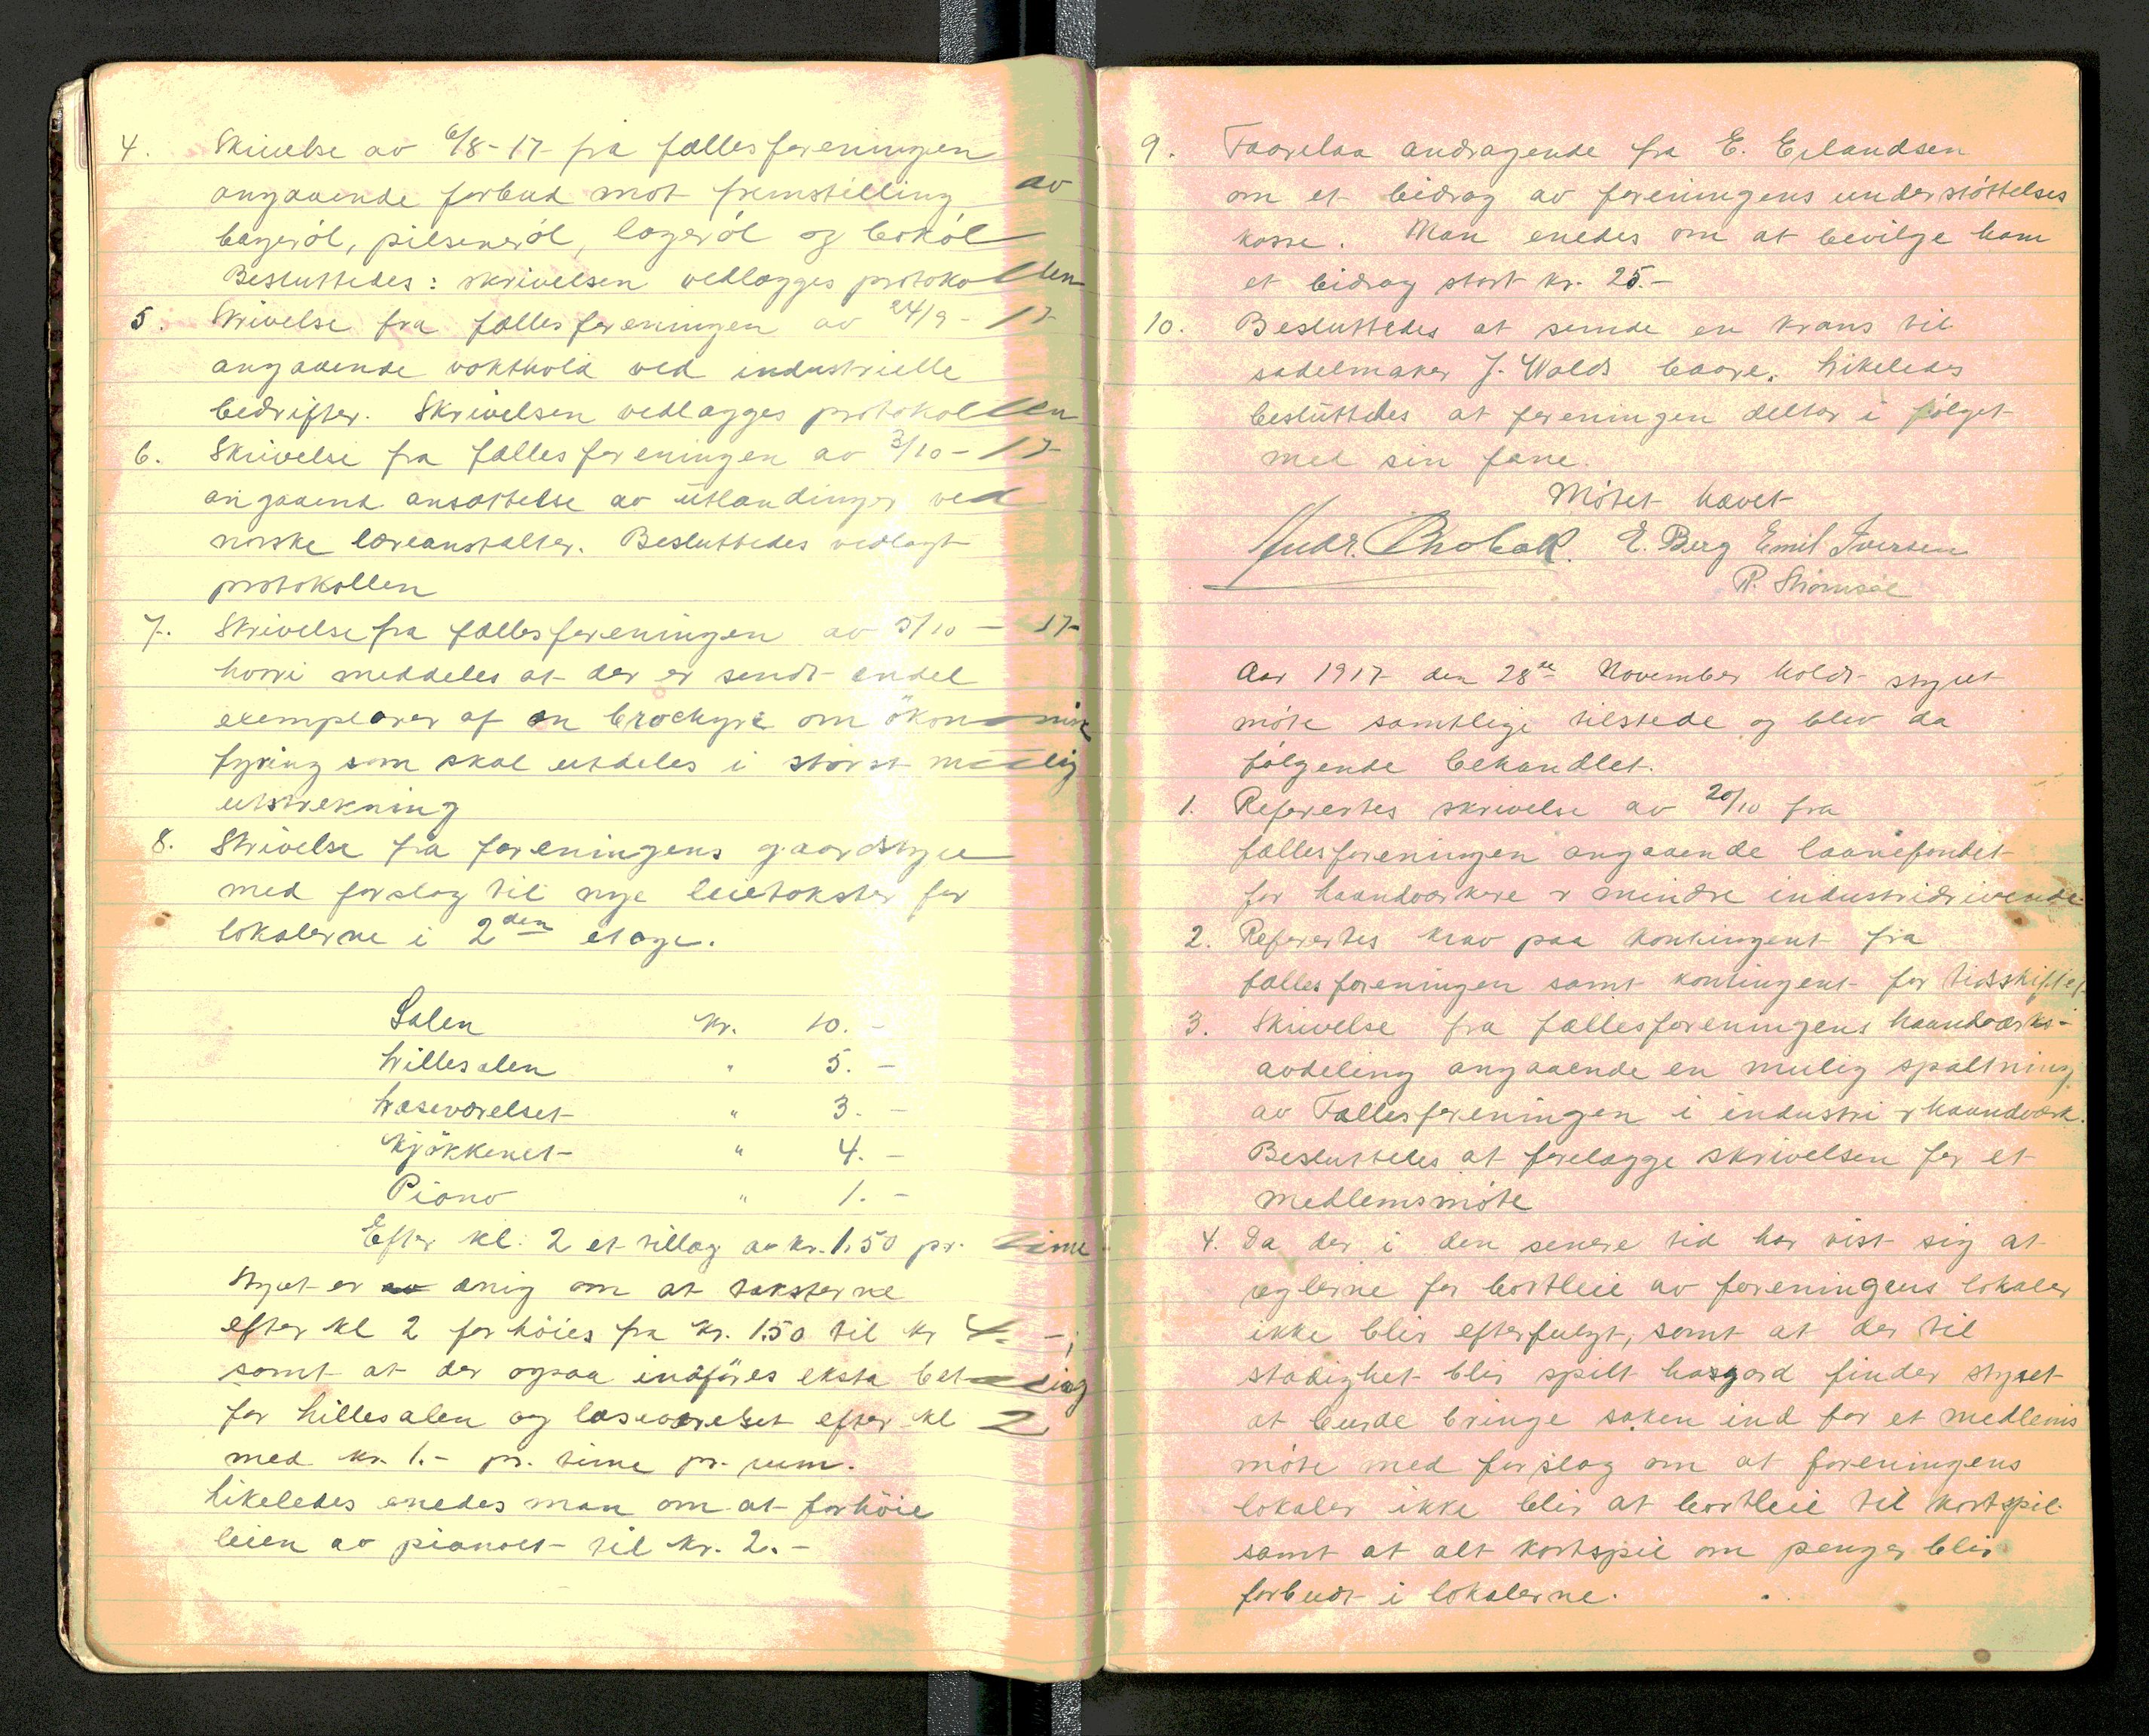 4. Skrivelse av 6/8-17 fra fællesforeningen
angaaende forbud mot fremstilling av
bayerøl, pilsenerøl, lagerøl og bokøl
Besluttedes: skrivelsen vedlægges protokollen
5. Skrivelse fra fællesforeningen av 24/9-17
angaaende vakthold ved industrielle
bedrifter. Skrivelsen vedlægges protokollen
6. Skrivelse fra fællesforeningen av 3/10-17
angaaend ansættelse av utlændinger ved
norske læreanstalter. Besluttedes vedlagt
protokollen
7. Skrivelse fra fællesforeningen av 5/10-17
hvori meddeles at der er sendt endel
exemplarer af en brochyre om økonomisk
fyring som skal utdeles i størst mulig
utstrekning
8. Skrivelse fra foreningens gaardstyre
med forslag til nye leietakster for
lokalerne i 2den etage.
Salen kr. 10.-
Lillesalen " 5.-
Læseværelset " 3.-
Kjøkkenet " 4.-
Piano " 1.-
Efter kl. 2 et tillæg av kr. 1.50 pr. time
Styret er enig om at taksterne
efter kl 2 forhøies fra kr. 1.50 til kr 4.-,
samt at der ogsaa indføres eksta betaling
for Lillesalen og læseværelset efter kl 2
med kr. 1.- pr. time pr. rum.
Likeledes enedes man om at forhøie
leien av pianoet til kr. 2.-
9. Foorelaa andragende fra E. Erlandsen
om et bidrag av foreningens understøttelses
kasse. Man enedes om at bevilge ham
et bidrag stort kr. 25.-
10. Besluttedes at sende en krans til
sadelmaker J. Walds baare. Likeledes
besluttedes at foreningen deltar i følget
med sin fane.
Møtet hævet
Andr. Brobak. E. Berg Emil Iversen
R. Strømsøe
Aar 1917 den 28de November holdt styret
møte samtlige tilstede og blev da
følgende behandlet.
1. Refertes skrivelse av 20/10 fra
fællesforeningen angaaende laanefondet
for haandværkere & mindre industridrivende.
2. Refertes krav paa kontingent fra
fællesforeningen samt kontingent for tidsskriftet
3. Skrivelse fra fællesforeningens haandværks-
avdeling angaaende en mulig spaltning
av Fællesforeningen i industri & haandværk.
Besluttedes at forelægge skrivelsen for et
medlemsmøte
4. Da der i den senere tid har vist sig at
reglerne for bortleie av foreningens lokaler
ikke blir efterfulgt, samt at der til
stadighet blir spilt hasard finder styret
at burde bringe saken ind for et medlems
møte med forslag om at foreningens
lokaler ikke blir at bortleie til kortspil
samt at alt kortspil om penger blir
forbudt i lokalerne.